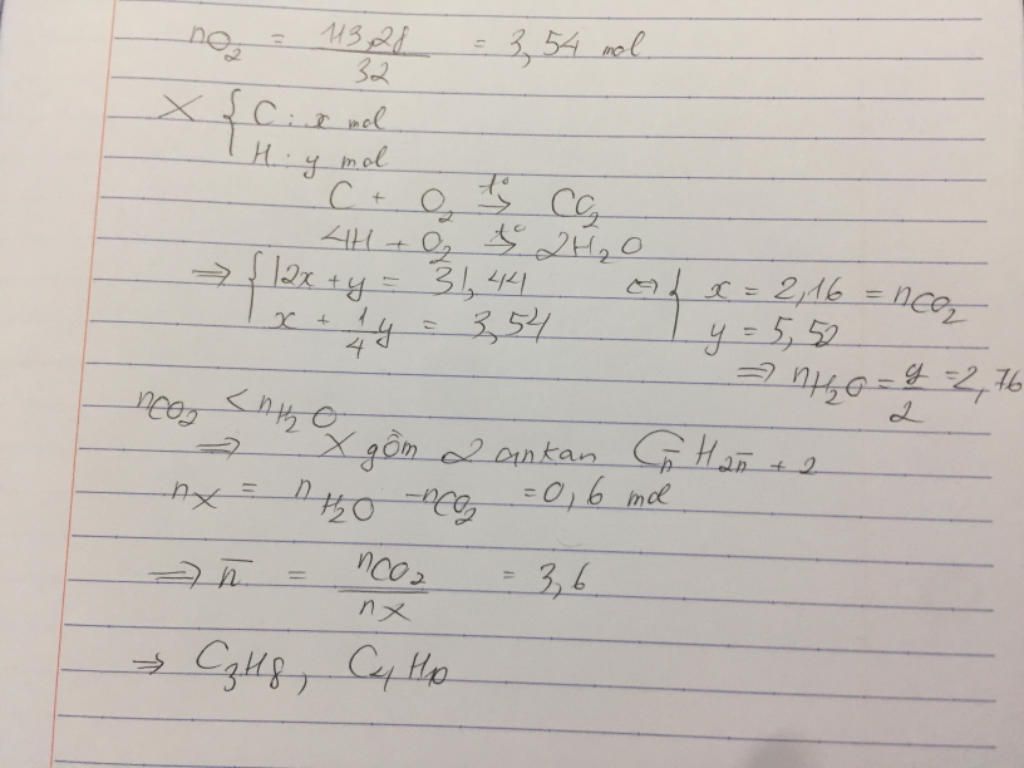 nO₂ = 113,28/32 = 3,54 mol
X { C : x mol
H : y mol
C + O₂ →(t°) CO₂
4H + O₂ →(t°) 2H₂O
⇒ { 12x + y = 31,44 ⇔ { x = 2,16 = nCO₂
x + 1/4 y = 3,54 y = 5,52
⇒ nH₂O = y/2 = 2,76
nCO₂ < nH₂O
⇒ X gồm 2 ankan Cn̄H2n̄+2
nX = nH₂O - nCO₂ = 0,6 mol
⇒ n̄ = nCO₂/nX = 3,6
⇒ C₃H₈, C₄H₁₀